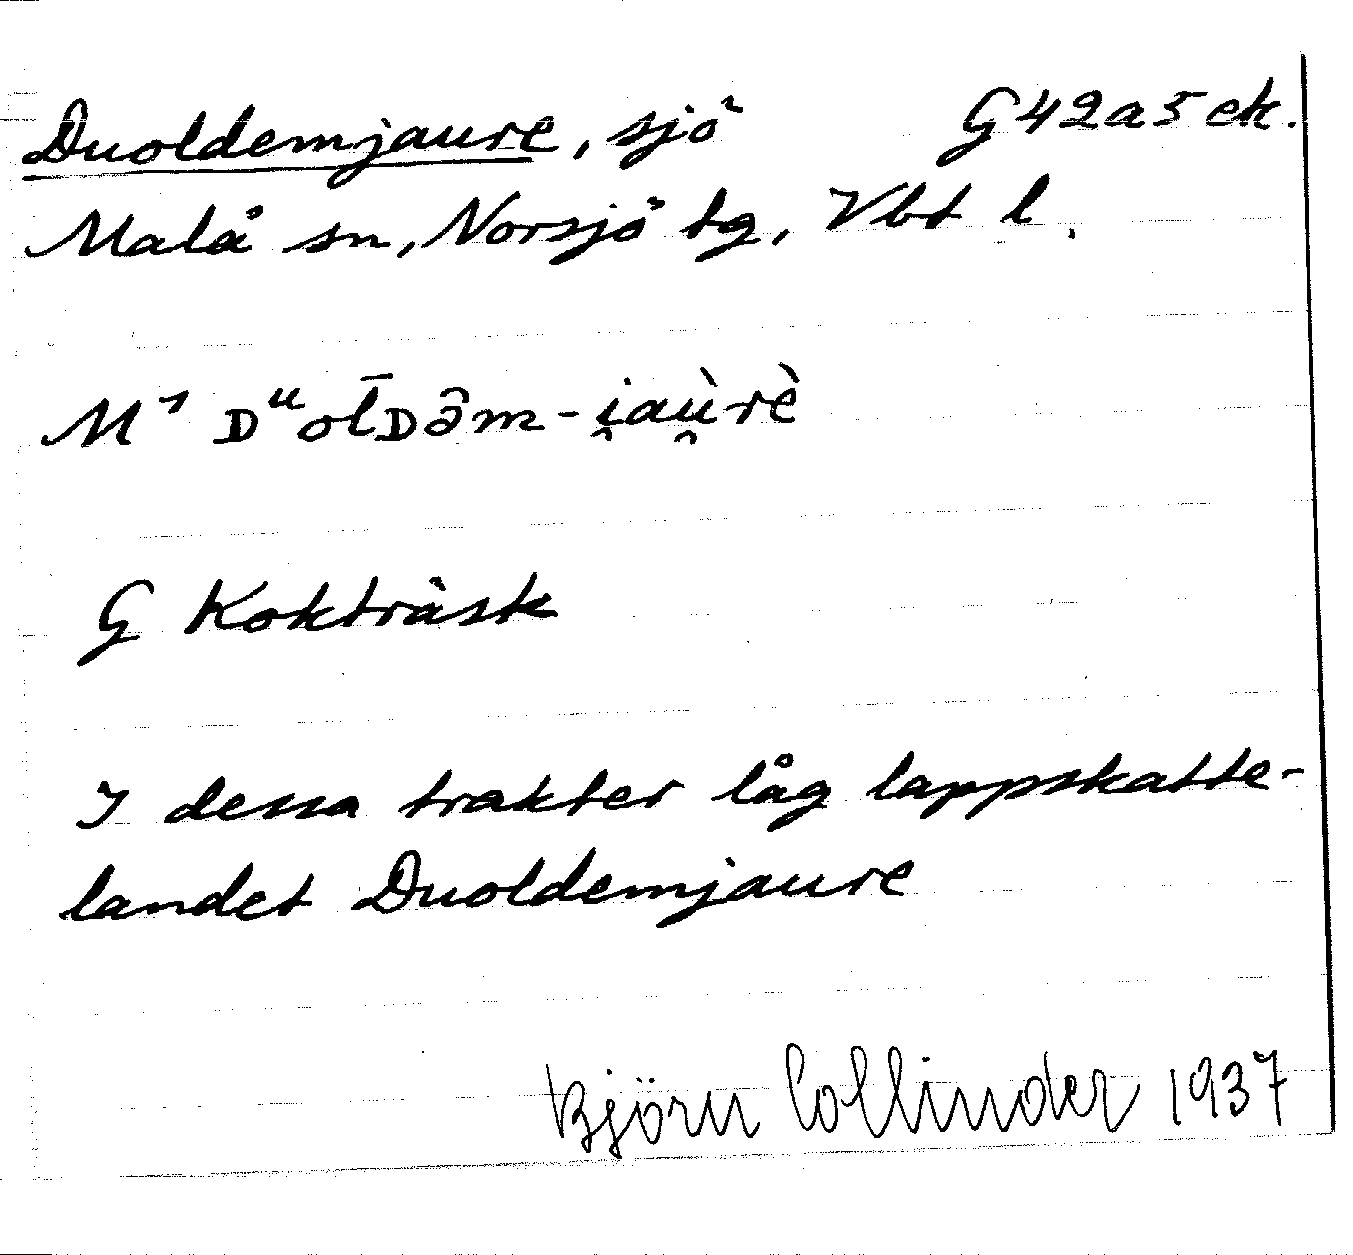 Duoldemjaure, sjö G42a5ek.
Malå sn, Norsjö tg, Vbt l.
M¹ ᴅᵘol̄ᴅə̑m-i̯aù̯rè
G Kokträsk
I dessa trakter låg lappskatte-
landet Duoldemjaure
Björn Collinder 1937